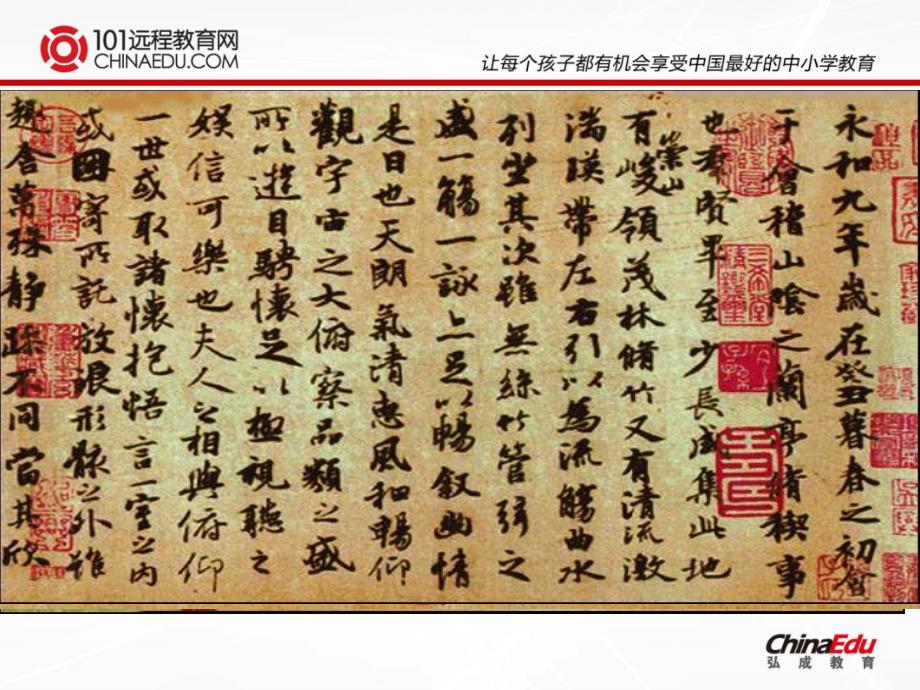 101远程教育网
CHINAEDU.COM
让每个孩子都有机会享受中国最好的中小学教育
永和九年歲在癸丑暮春之初會
于會稽山陰之蘭亭脩稧事
也羣賢畢至少長咸集此地
有崇山峻領茂林脩竹又有清流激
湍暎帶左右引以為流觴曲水
列坐其次雖無絲竹管弦之
盛一觴一詠亦足以暢敘幽情
是日也天朗氣清惠風和暢仰
觀宇宙之大俯察品類之盛
所以遊目騁懷足以極視聽之
娛信可樂也夫人之相與俯仰
一世或取諸懷抱悟言一室之內
或因寄所託放浪形骸之外雖
趣舍萬殊靜躁不同當其欣
ChinaEdu
弘成教育